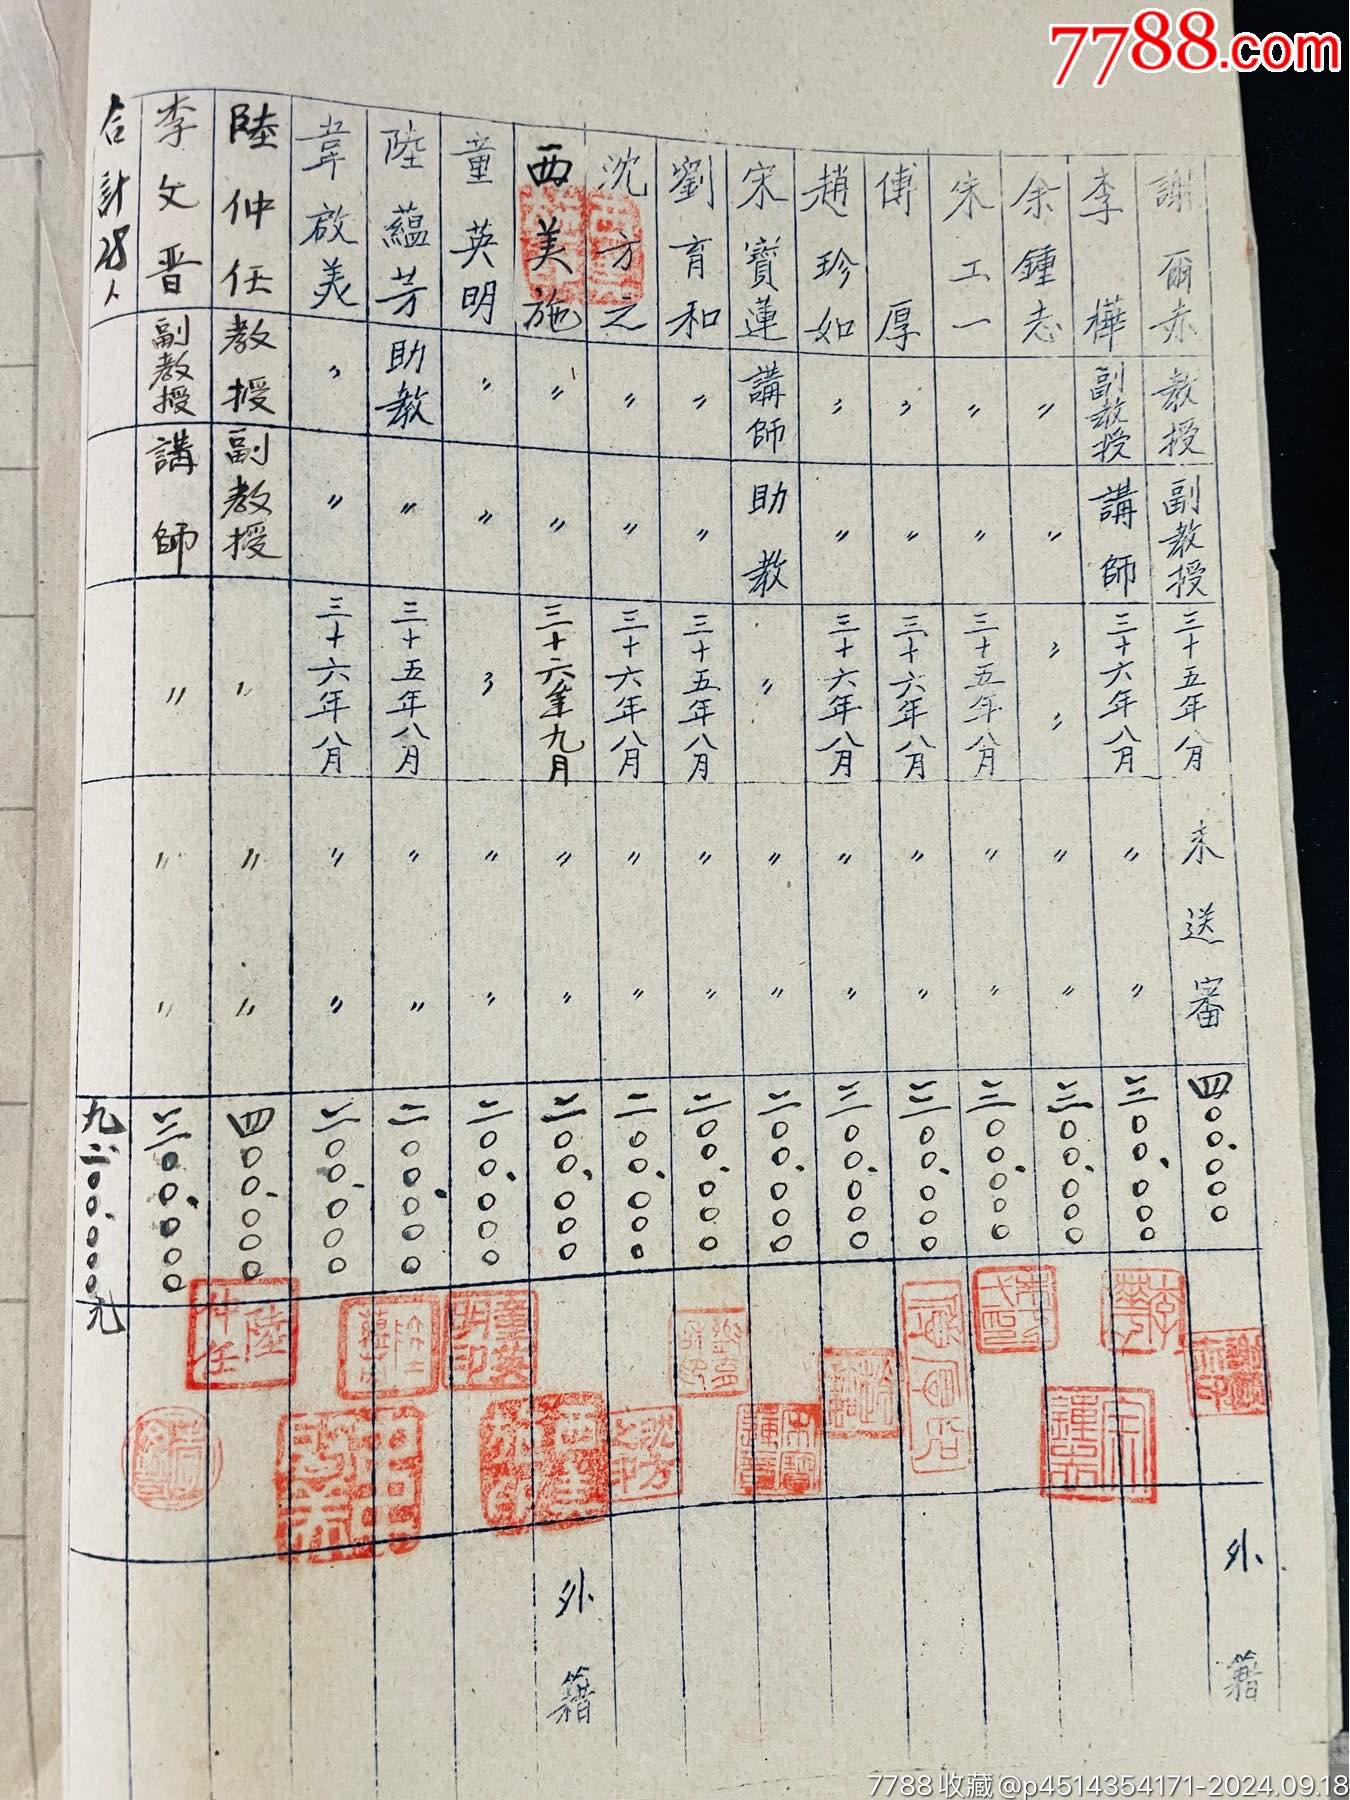 7788.com
謝爾赤 教授 副教授 三十五年八月 未送審 四〇〇、〇〇〇 外籍
李樺 副教授 講師 三十六年八月 〃 〃 三〇〇、〇〇〇
余鍾志 〃 〃 〃 〃 〃 〃 三〇〇、〇〇〇
宋工一 〃 〃 三十五年八月 〃 〃 三〇〇、〇〇〇
傅厚 〃 〃 三十六年八月 〃 〃 三〇〇、〇〇〇
趙珍如 〃 〃 三十六年八月 〃 〃 三〇〇、〇〇〇
宋寶蓮 講師 助教 〃 〃 〃 二〇〇、〇〇〇
劉育和 〃 〃 三十五年八月 〃 〃 二〇〇、〇〇〇
沈方之 〃 〃 三十六年八月 〃 〃 二〇〇、〇〇〇
西美施 〃 〃 三十六年九月 〃 〃 二〇〇、〇〇〇 外籍
童英明 〃 〃 〃 〃 〃 二〇〇、〇〇〇
陸蘊芳 助教 〃 三十五年八月 〃 〃 二〇〇、〇〇〇
韋啟美 〃 〃 三十六年八月 〃 〃 二〇〇、〇〇〇
陸仲任 教授 副教授 〃 〃 〃 四〇〇、〇〇〇
李文晋 副教授 講師 〃 〃 〃 三〇〇、〇〇〇
合計28人 九二〇〇、〇〇〇元
陸仲任
陸蘊芳
童英明印
沈方之
宋寶蓮章
7788收藏@p4514354171-2024.09.18